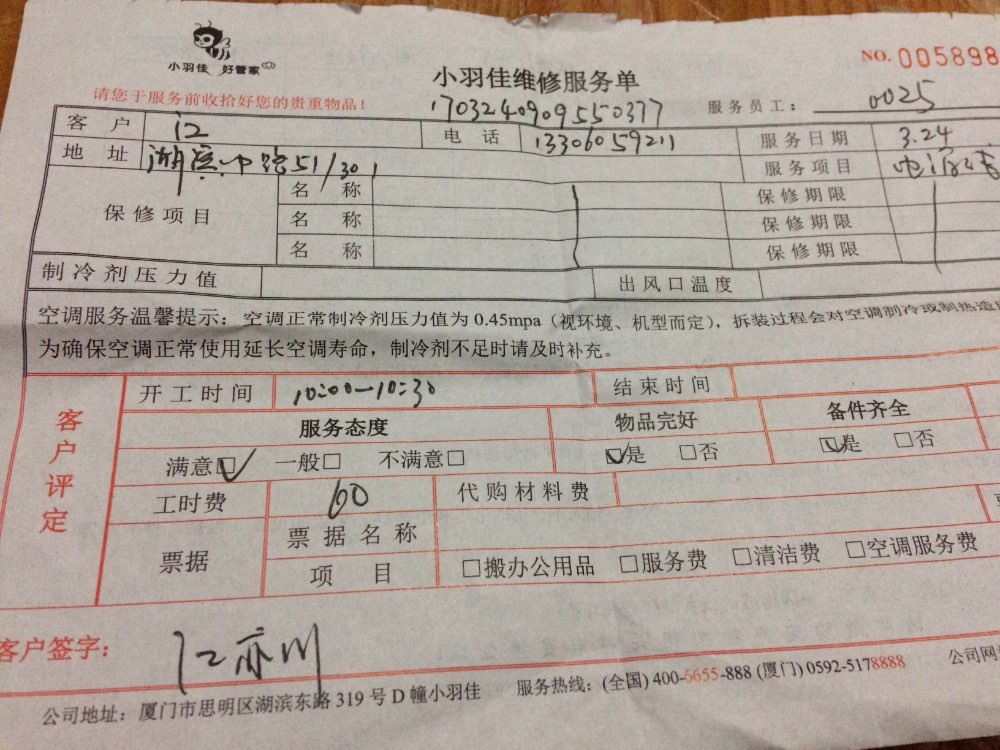 小羽佳 好管家
NO. 005898
小羽佳维修服务单
请您于服务前收拾好您的贵重物品！
1703240909550377
服务员工： 0025
客户 江 电话 13306059211 服务日期 3.24
地址 湖滨中路51/301 服务项目
保修项目 名称 保修期限
名称 保修期限
名称 保修期限
制冷剂压力值 出风口温度
空调服务温馨提示：空调正常制冷剂压力值为 0.45mpa（视环境、机型而定），拆装过程会对空调制冷或制热造
为确保空调正常使用延长空调寿命，制冷剂不足时请及时补充。
客户评定
开工时间 10:00—10:30 结束时间
服务态度 物品完好 备件齐全
满意☑ 一般□ 不满意□ ☑是 □否 ☑是 □否
工时费 60 代购材料费
票据 票据名称
项目 □搬办公用品 □服务费 □清洁费 □空调服务费
客户签字： 江亦川
公司地址：厦门市思明区湖滨东路 319 号 D 幢小羽佳 服务热线：(全国) 400-6655-888 (厦门) 0592-5178888 公司网